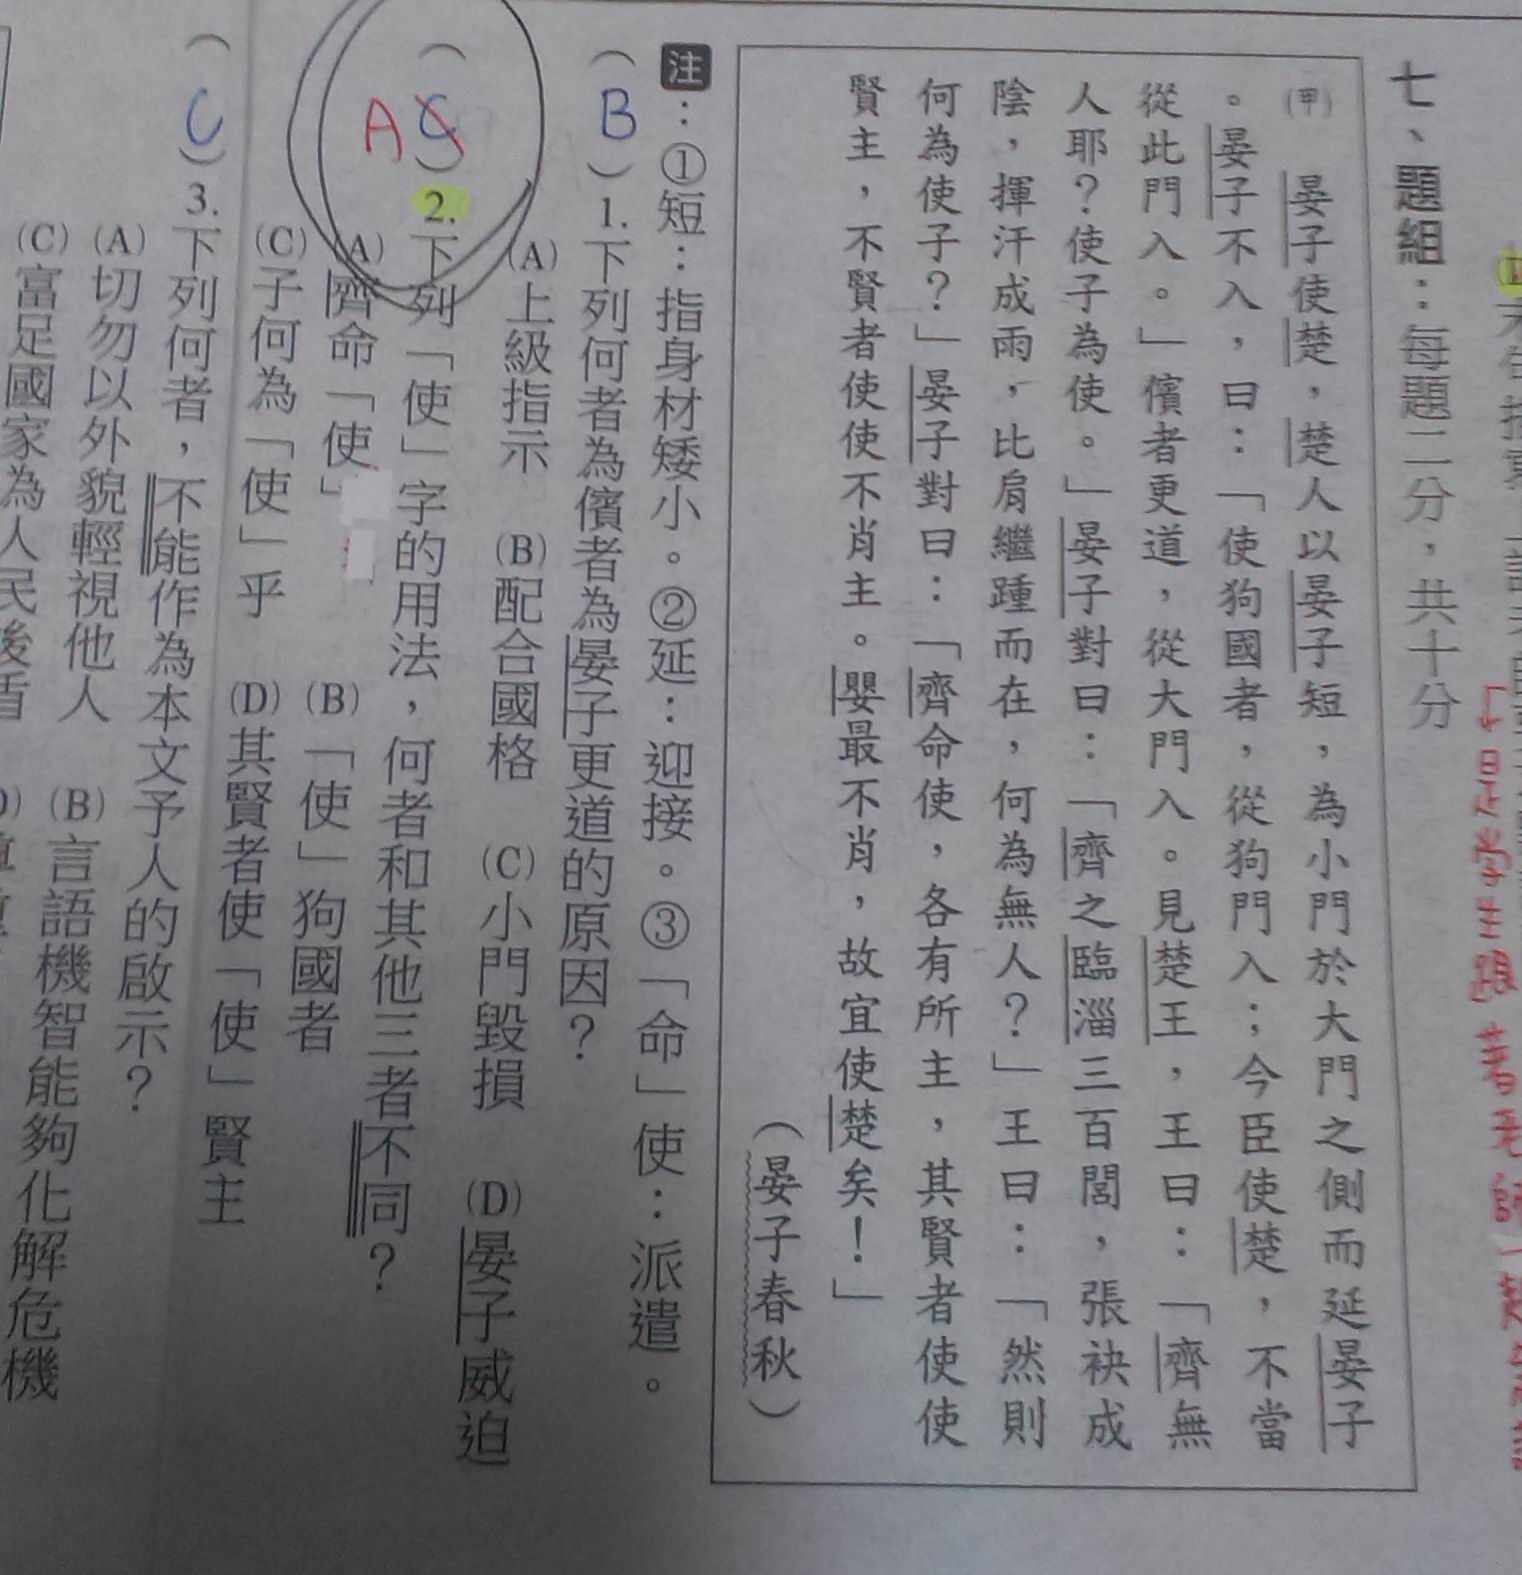 是學生跟著老師一起
七、題組：每題二分，共十分
(甲)　晏子使楚，楚人以晏子短，為小門於大門之側而延晏子
。晏子不入，曰：「使狗國者，從狗門入；今臣使楚，不當
從此門入。」儐者更道，從大門入。見楚王，王曰：「齊無
人耶？使子為使。」晏子對曰：「齊之臨淄三百閭，張袂成
陰，揮汗成雨，比肩繼踵而在，何為無人？」王曰：「然則
何為使子？」晏子對曰：「齊命使，各有所主，其賢者使使
賢主，不賢者使使不肖主。嬰最不肖，故宜使楚矣！」
（晏子春秋）
注：①短：指身材矮小。②延：迎接。③「命」使：派遣。
（B）1.下列何者為儐者為晏子更道的原因？
(A)上級指示　(B)配合國格　(C)小門毀損　(D)晏子威迫
（C）A 2.下列「使」字的用法，何者和其他三者不同？
(A)齊命「使」　(B)「使」狗國者
(C)子何為「使」乎　(D)其賢者使「使」賢主
（C）3.下列何者，不能作為本文予人的啟示？
(A)切勿以外貌輕視他人　(B)言語機智能夠化解危機
(C)富足國家為人民後盾